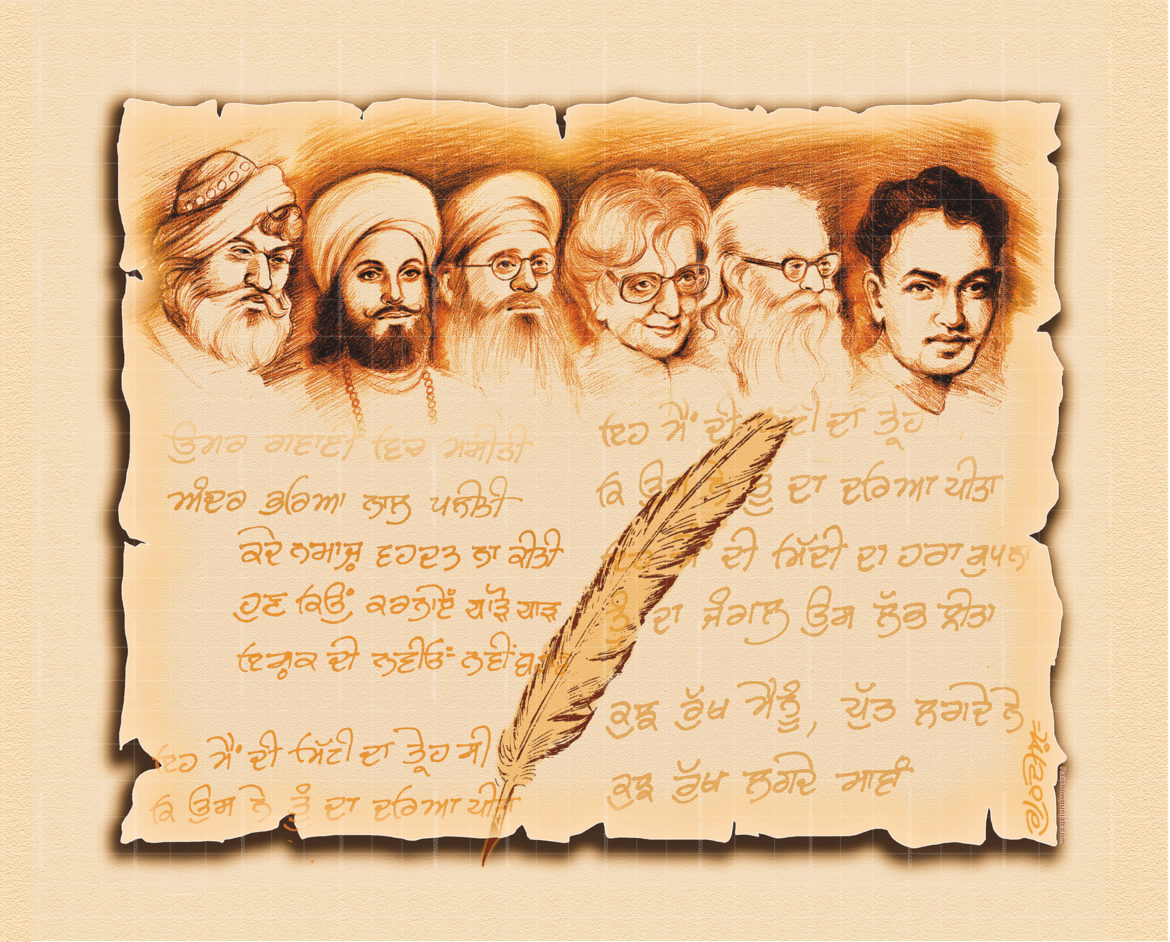 ਉਮਰ ਗਵਾਈ ਵਿਚ ਮਸੀਤੀ
ਅੰਦਰ ਭਰਿਆ ਨਾਲ ਪਲੀਤੀ
ਕਦੇ ਨਮਾਜ਼ ਵਹਦਤ ਨਾ ਕੀਤੀ
ਹੁਣ ਕਿਉਂ ਕਰਨਾਏਂ ਧਾੜੋ ਧਾੜ
ਇਸ਼ਕ ਦੀ ਨਵੀਓਂ ਨਵੀਂ
ਇਹ ਮੈਂ ਦੀ ਮਿੱਟੀ ਦਾ ਤ੍ਰੇਹ ਸੀ
ਕਿ ਉਸ ਨੇ ਤੂੰ ਦਾ ਦਰਿਆ ਪੀਤਾ
ਇਹ ਮੈਂ ਦੀ ਮਿੱਟੀ ਦਾ ਤ੍ਰੇਹ
ਕਿ ਉਸ ਨੇ ਤੂੰ ਦਾ ਦਰਿਆ ਪੀਤਾ
ਮੈਂ ਦੀ ਮਿੱਟੀ ਦਾ ਹਰਾ ਸੁਪਨਾ
ਤੂੰ ਦਾ ਜੰਗਲ ਉਸ ਲੱਭ ਲੀਤਾ
ਕੁਝ ਰੁੱਖ ਮੈਨੂੰ, ਪੁੱਤ ਲਗਦੇ ਨੇ
ਕੁਝ ਰੁੱਖ ਲਗਦੇ ਮਾਵਾਂ